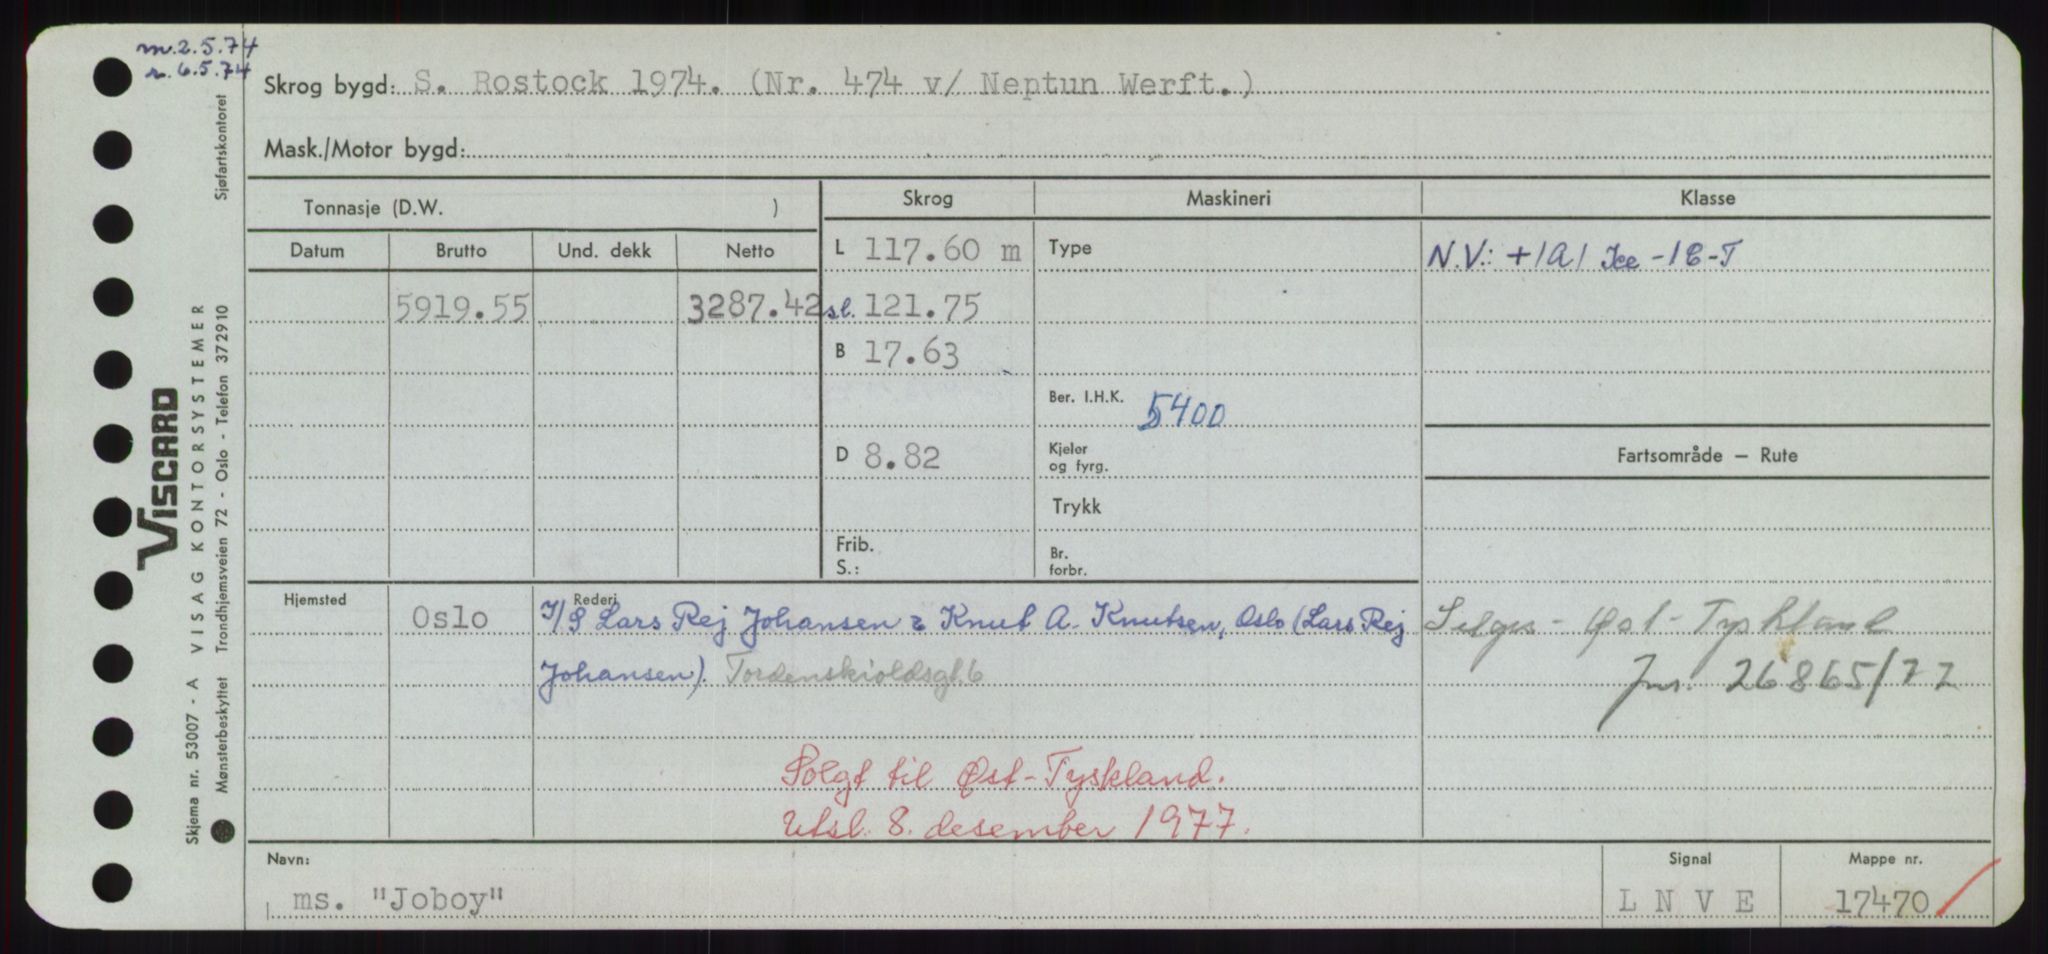 m. 2.5.74
r. 6.5.74
Sjøfartskontoret
Skrog bygd: S. Rostock 1974. (Nr. 474 v/ Neptun Werft.)
Mask./Motor bygd:
Tonnasje (D.W. )
Skrog
Maskineri
Klasse
Datum
Brutto
Und. dekk
Netto
L 117.60 m
Type
N.V.: +1A1 Ice-1C-T
5919.55
3287.42
sl. 121.75
B 17.63
Ber. I.H.K. 5400
D 8.82
Kjeler
og fyrg.
Fartsområde — Rute
Trykk
Frib.
S.:
Br.
forbr.
Hjemsted
Oslo
Rederi
I/S Lars Rej Johansen & Knut A. Knutsen, Oslo (Lars Rej
Johansen). Tordenskioldsgt. 6
Selges - Øst-Tyskland
Jnr. 26865/77
Solgt til Øst-Tyskland.
Utsl. 8. desember 1977.
Navn:
ms. "Joboy"
Signal
L N V E
Mappe nr.
17470
VISCARD
Skjema nr. 53007 - A VISAG KONTORSYSTEMER
Mønsterbeskyttet Trondhjemsveien 72 - Oslo - Telefon 372910